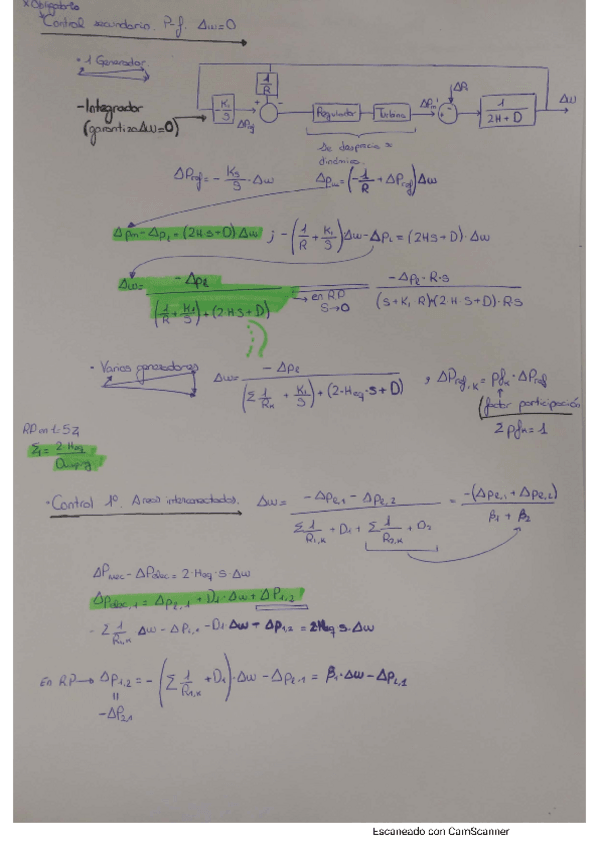 * Obligatorio
Control secundario. P-f. Δω=0
• 1 Generador
- Integrador
(garantiza Δω=0)
-K₁/S
ΔPref
1/R
+
-
Regulador
Turbina
ΔPm
ΔPl
+
-
1/(2H+D)
Δω
Se desprecia
dinámica.
ΔPref = - K₁/S · Δω
ΔPm = (-1/R + ΔPref) Δω
ΔPm - ΔPl = (2HS+D) Δω ; -(1/R + K₁/S) Δω - ΔPl = (2HS+D) · Δω
Δω = -ΔPl / ((1/R + K₁/S) + (2·H·S+D))
en RP
S→0
-ΔPl · R·S / ((S+K₁ R)+(2·H·S+D)·RS)
• Varios generadores
Δω = -ΔPl / ((Σ 1/Rk + K₁/S) + (2·Heq·S+D)) , ΔPref,k = pfk · ΔPref
(factor participación
Σpfk = 1
RP
2·Heq
• Control 1º. Areas interconectadas. Δω = (-ΔPl,1 - ΔPl,2) / (Σ 1/R1,k + D1 + Σ 1/R2,k + D2) = -(ΔPl,1 + ΔPl,2) / (β1 + β2)
= 2·Heq·S·Δω
= ΔPl,1 + D1·Δω + ΔP1,2
- Σ 1/R1,k Δω - ΔPl,1 - D1 Δω - ΔP1,2 = 2Heq S·Δω
En RP → ΔP1,2 = -(Σ 1/R1,k + D1) · Δω - ΔPl,1 = β1·Δω - ΔPl,1
=
-ΔP2,1
Escaneado con CamScanner